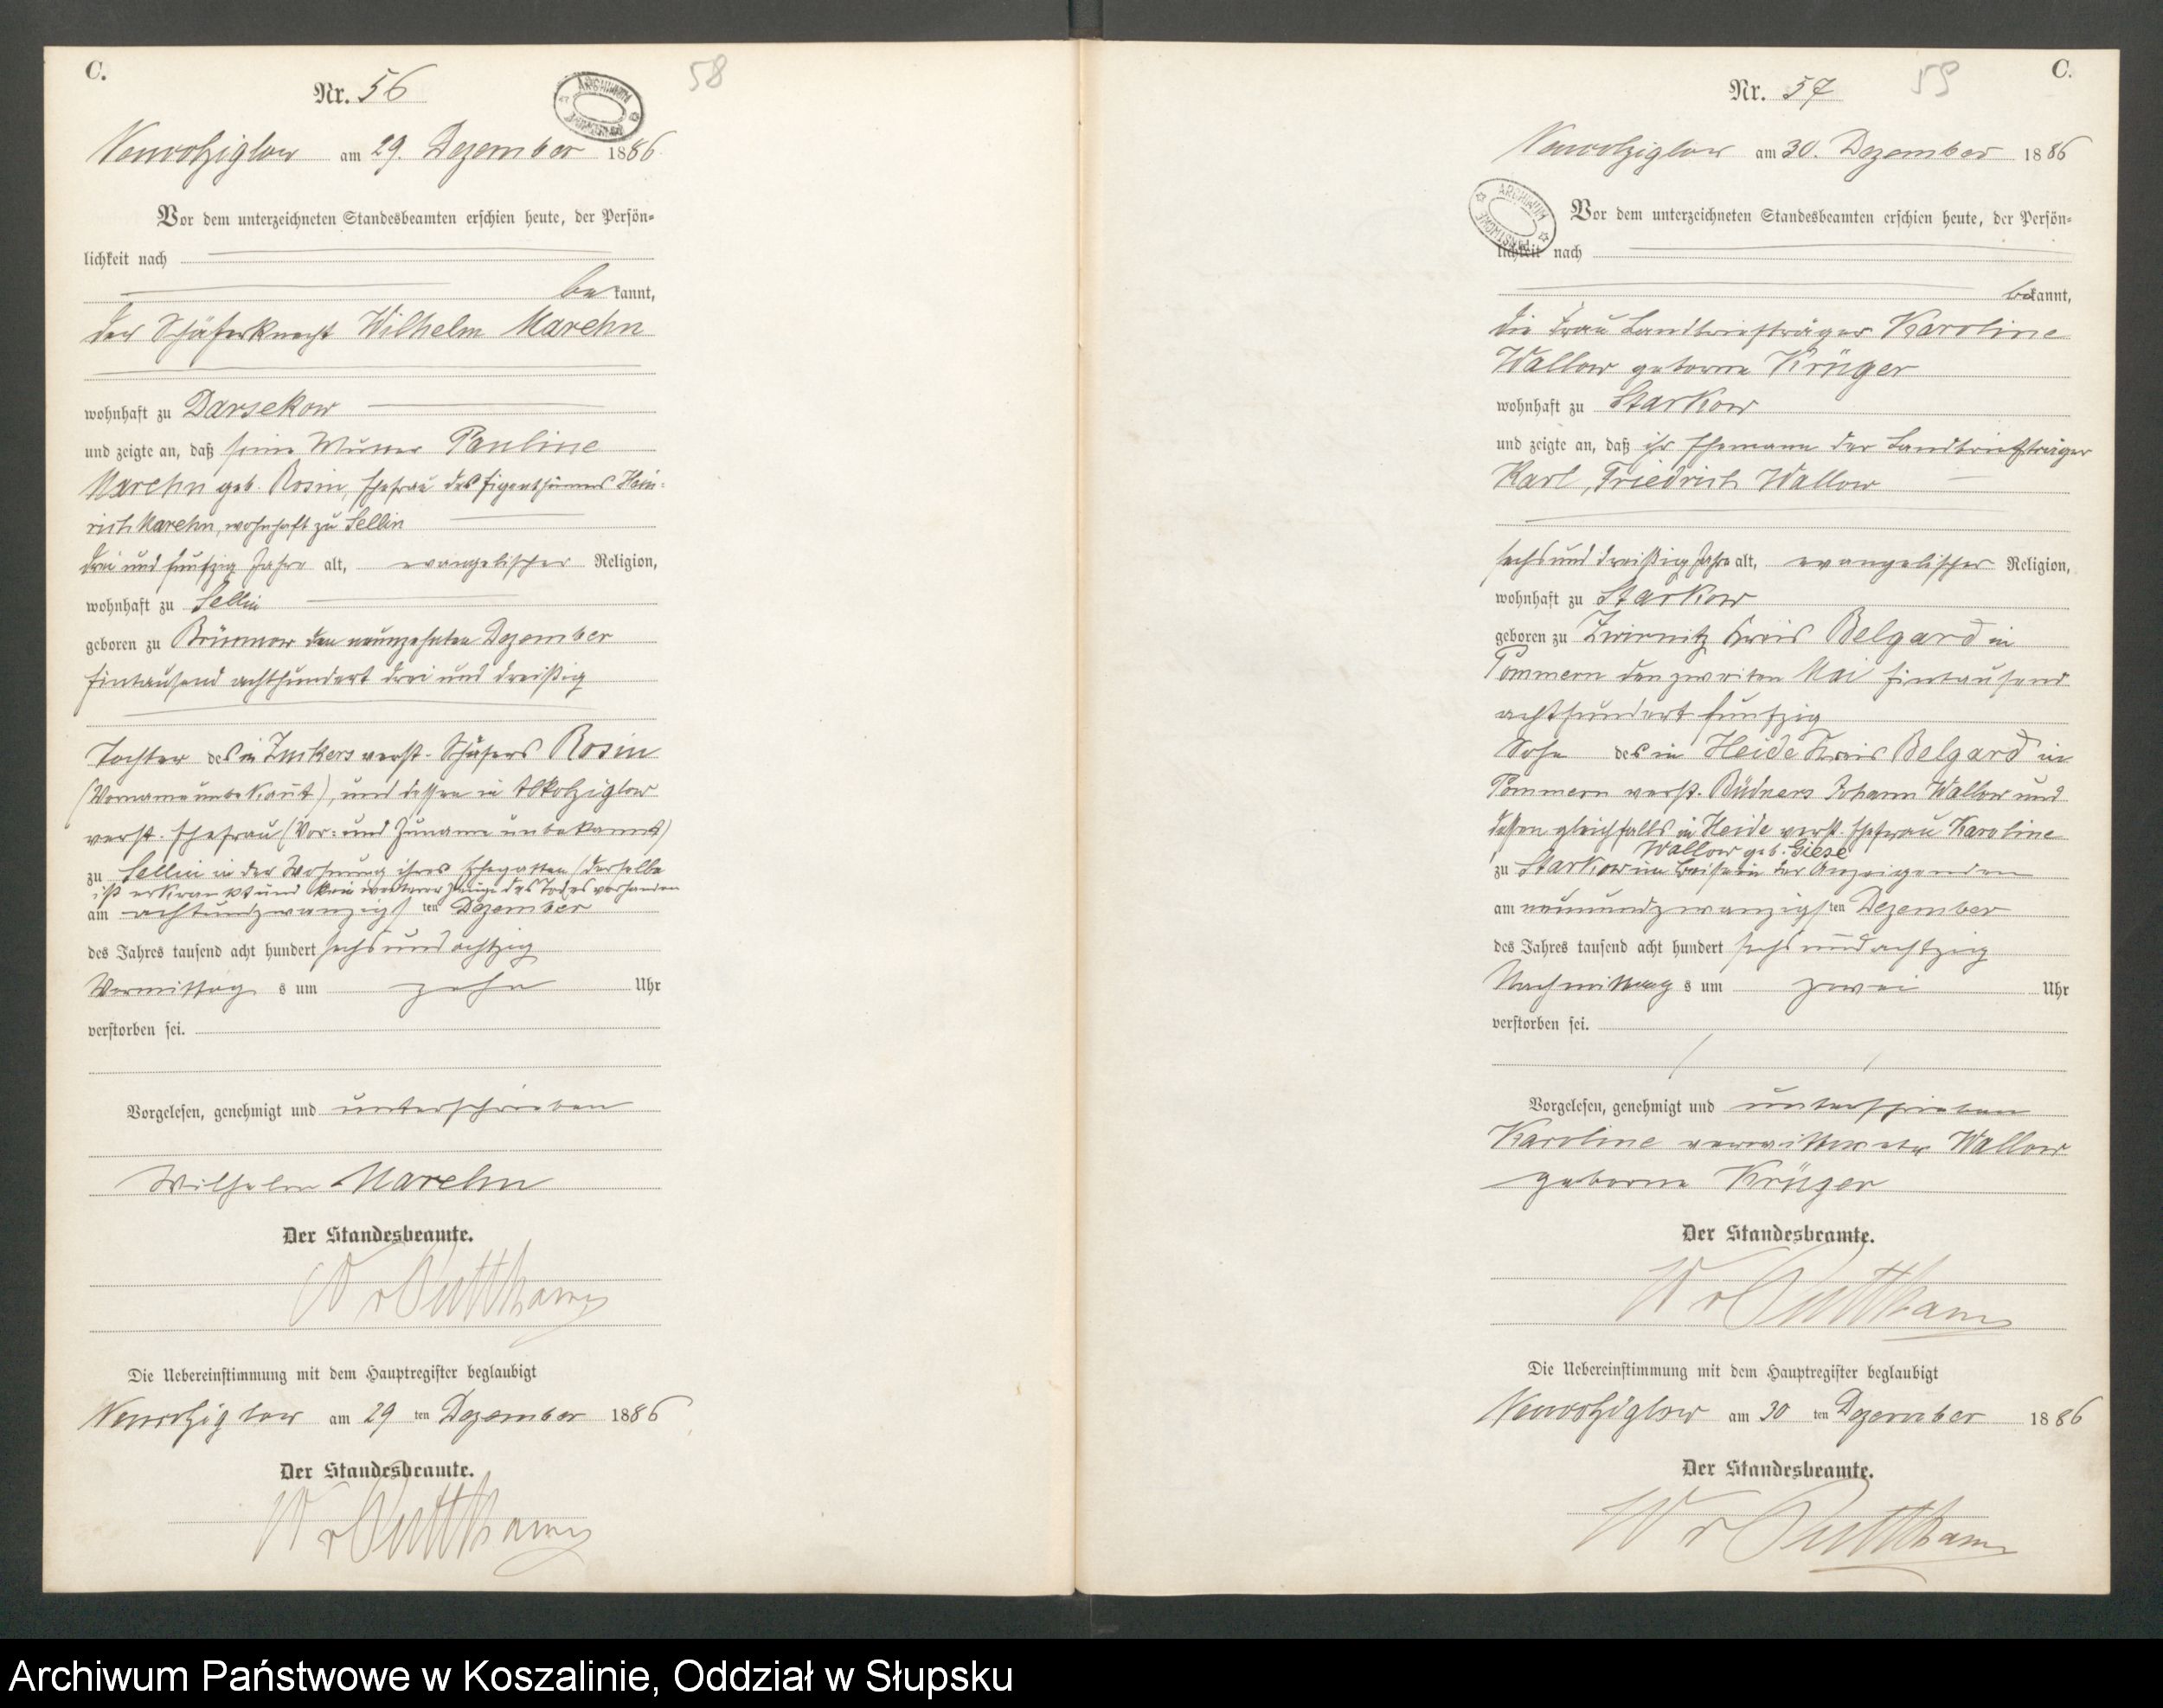 C.
Nr. 56
58
ARCHIWUM
Neukolziglow am 29. Dezember 1886.
Vor dem unterzeichneten Standesbeamten erschien heute, der Persön-
lichkeit nach
bekannt,
der Schäferknecht Wilhelm Marehn
wohnhaft zu Darsekow
und zeigte an, daß seine Mutter Pauline
Marehn geb. Rosin, Ehefrau des Eigenthümers Hein-
rich Marehn, wohnhaft zu Sellin
drei und funfzig Jahre alt, evangelischer Religion,
wohnhaft zu Sellin
geboren zu Brünnow den neunzehnten Dezember
Eintausend achthundert drei und dreißig
Tochter des in Zuckers verst. Schäfers Rosin
(Vorname unbekannt), und dessen in Altkolziglow
verst. Ehefrau (Vor- und Zuname unbekannt)
zu Sellin in der Wohnung ihres Ehegatten (derselbe
ist erkrankt und kein weiterer Zeuge des Todes vorhanden
am achtundzwanzigsten Dezember
des Jahres tausend acht hundert sechs und achtzig
Vormittags um zehn Uhr
verstorben sei.
Vorgelesen, genehmigt und unterschrieben
Wilhelm Marehn
Der Standesbeamte.
W v Puttkamer
Die Uebereinstimmung mit dem Hauptregister beglaubigt
Neukolziglow am 29 ten Dezember 1886
Der Standesbeamte.
W v Puttkamer
C.
Nr. 57
59
ARCHIWUM
Neukolziglow am 30. Dezember 1886
Vor dem unterzeichneten Standesbeamten erschien heute, der Persön-
lichkeit nach
bekannt,
die Frau Landbriefträger Karoline
Wallow geborne Krüger
wohnhaft zu Starkow
und zeigte an, daß ihr Ehemann der Landbriefträger
Karl, Friedrich Wallow
sechs und dreißig Jahre alt, evangelischer Religion,
wohnhaft zu Starkow
geboren zu Zwirnitz Kreis Belgard in
Pommern den zweiten Mai Eintausend
achthundert funfzig
Sohn des in Heide Kreis Belgard in
Pommern verst. Büdners Johann Wallow und
dessen gleichfalls in Heide verst. Ehefrau Karoline
Wallow geb. Giese
zu Starkow im Beisein der Anzeigenden
am neunundzwanzigsten Dezember
des Jahres tausend acht hundert sechs und achtzig
Nachmittags um zwei Uhr
verstorben sei.
Vorgelesen, genehmigt und unterschrieben
Karoline verwittwete Wallow
geborne Krüger
Der Standesbeamte.
W v Puttkamer
Die Uebereinstimmung mit dem Hauptregister beglaubigt
Neukolziglow am 30 ten Dezember 1886
Der Standesbeamte.
W v Puttkamer
Archiwum Państwowe w Koszalinie, Oddział w Słupsku